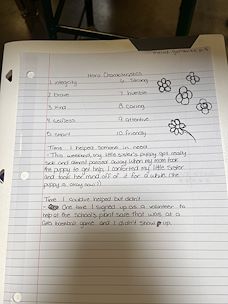 Hero Characteristics
1. integrity 6. strong
2. brave 7. humble
3. kind 8. caring
4. selfless 9. attentive
5. smart 10. friendly
Time I helped someone in need
- This weekend, my little sister's puppy got really
sick and almost passed away. When my mom took
the puppy to get help, I comforted my little sister
and took her mind off of it for a while (the
puppy is okay now!)
Time I could've helped but didn't
- One time I signed up as a volunteer to
help at the school's plant sale that was at a
baseball game and I didn't show up.